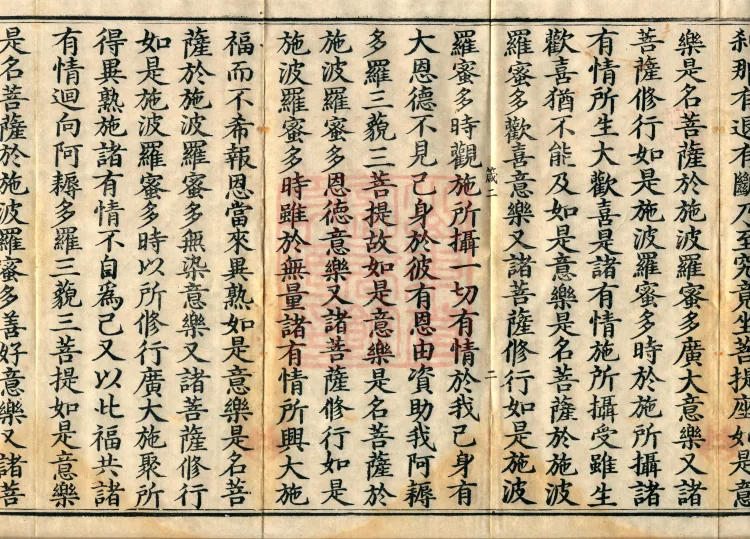 刹那有退有斷乃至究竟坐菩提座如是意
樂是名菩薩於施波羅蜜多廣大意樂又諸
菩薩修行如是施波羅蜜多時於施所攝諸
有情所生大歡喜是諸有情施所攝受雖生
歡喜猶不能及如是意樂是名菩薩於施波
羅蜜多歡喜意樂又諸菩薩修行如是施波
箴二
二
羅蜜多時觀施所攝一切有情於我己身有
大恩德不見己身於彼有恩由資助我阿耨
多羅三藐三菩提故如是意樂是名菩薩於
施波羅蜜多恩德意樂又諸菩薩修行如是
施波羅蜜多時雖於無量諸有情所興大施
福而不希報恩當來異熟如是意樂是名菩
薩於施波羅蜜多無染意樂又諸菩薩修行
如是施波羅蜜多時以所修行廣大施聚所
得異熟施諸有情不自爲己又以此福共諸
有情迴向阿耨多羅三藐三菩提如是意樂
是名菩薩於施波羅蜜多善好意樂又諸菩